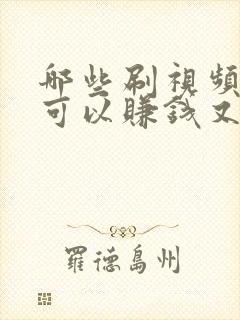 哪些刷視頻
可以賺錢又
羅德島州